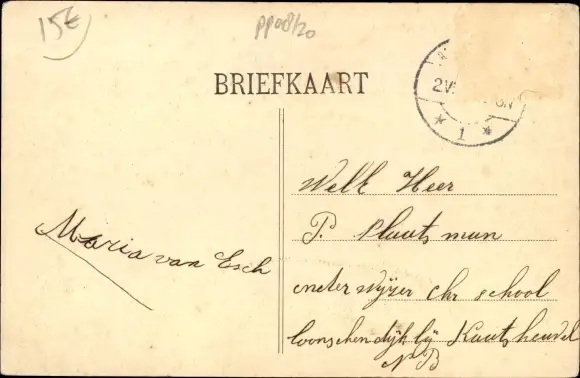 15€
pp08/20
BRIEFKAART
2V
1
N
Maria van Esch
WelE Heer
P. Plaatsman
onderwijzer Chr school
loonschendijk bij Kaatsheuvel
N B